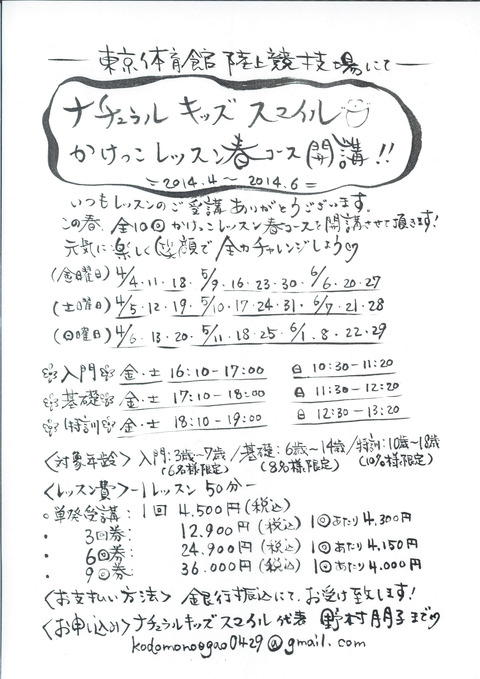 東京体育館 陸上競技場にて
ナチュラル キッズ スマイル
かけっこ レッスン 春コース 開講!!
=2014.4～2014.6=
いつもレッスンのご受講ありがとうございます。
この春、全10回かけっこレッスン春コースを開講させて頂きます!
元気に楽しく笑顔で全力チャレンジしよう♡
(金曜日) 4/4・11・18・5/9・16・23・30・6/6・20・27
(土曜日) 4/5・12・19・5/10・17・24・31・6/7・21・28
(日曜日) 4/6・13・20・5/11・18・25・6/1・8・22・29
入門 金・土 16:10-17:00 日 10:30-11:20
基礎 金・土 17:10-18:00 日 11:30-12:20
特訓 金・土 18:10-19:00 日 12:30-13:20
<対象年齢> 入門:3歳~7歳/基礎:6歳~14歳/特訓:10歳~18歳
(6名様限定) (8名様限定) (10名様限定)
<レッスン費> -1レッスン 50分-
○単発受講: 1回 4,500円(税込)
・3回券: 12,900円(税込) 1回あたり4,300円
・6回券: 24,900円(税込) 1回あたり4,150円
・9回券: 36,000円(税込) 1回あたり4,000円
<お支払い方法> 銀行振込にて、お受け致します!
<お申し込み> ナチュラルキッズスマイル 代表 野村朋子まで♡
kodomonoegao0429@gmail.com